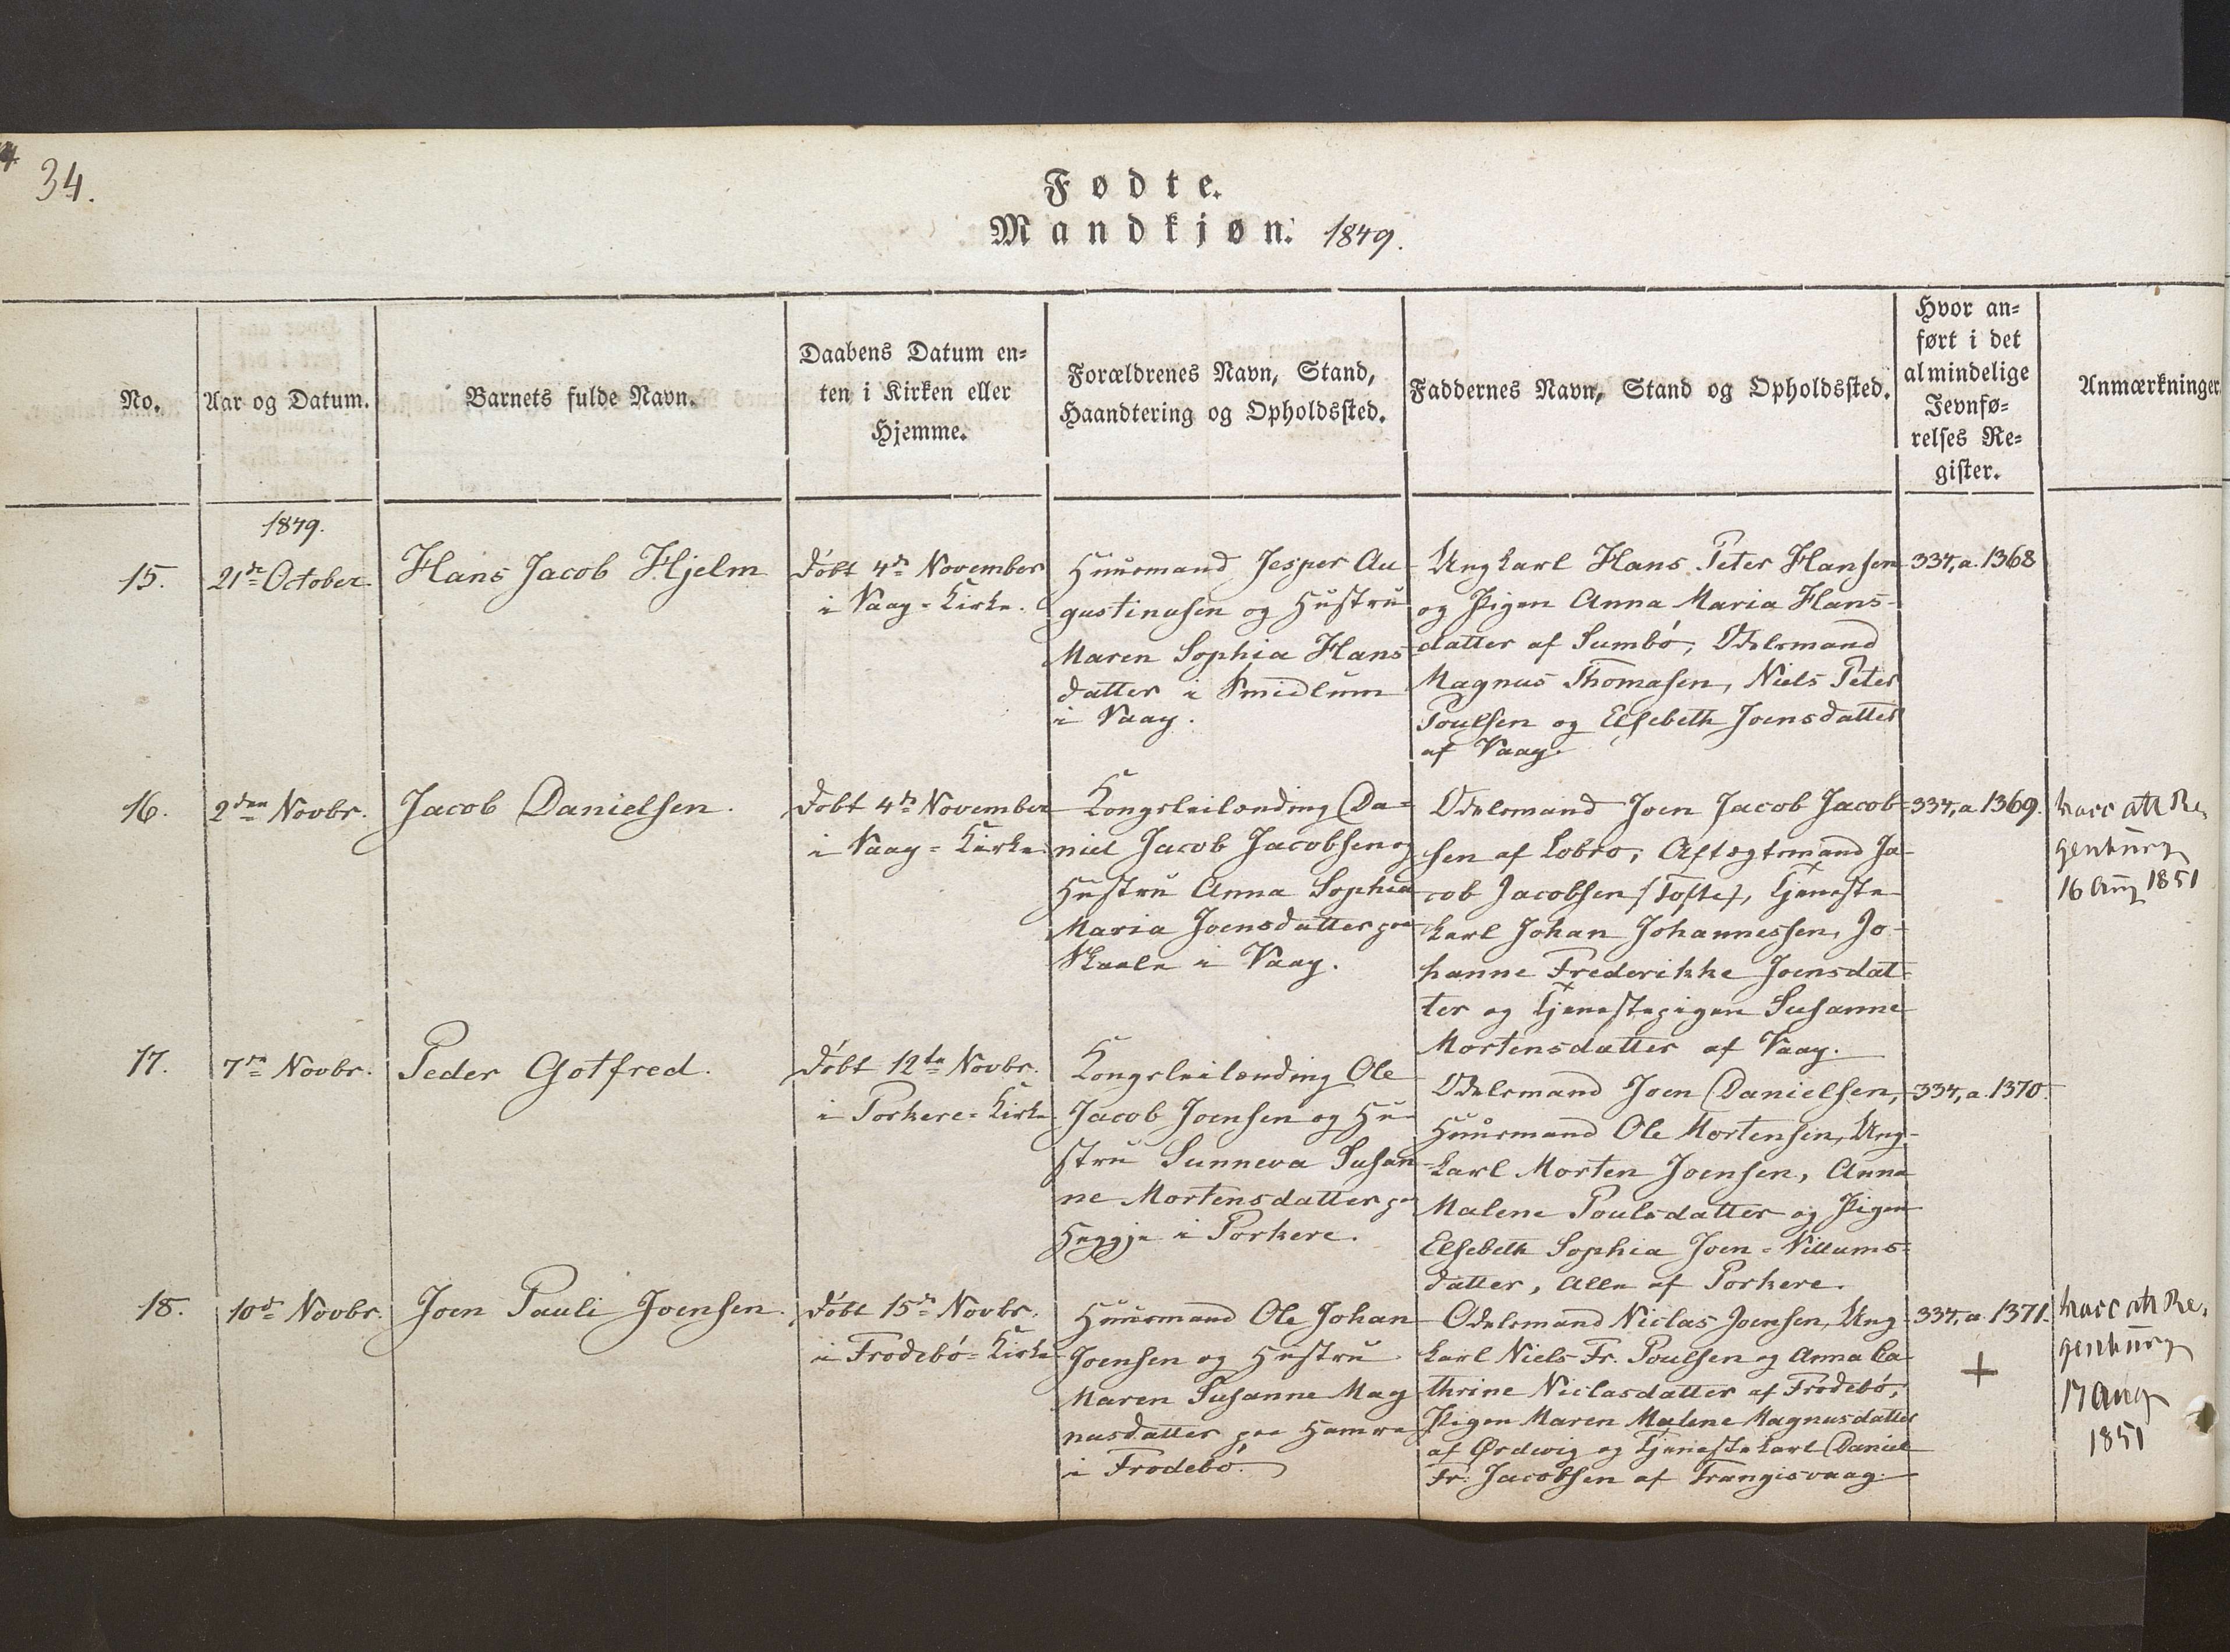 34.
Fødte.
Mandkjøn. 1849.
No.
Aar og Datum.
Barnets fulde Navn.
Daabens Datum en-
ten i Kirken eller
Hjemme.
Forældrenes Navn, Stand,
Haandtering og Opholdssted.
Faddernes Navn, Stand og Opholdssted.
Hvor an-
ført i det
almindelige
Jevnfø-
relses Re-
gister.
Anmærkninger.
1849.
15.
21de October
Hans Jacob Hjelm
døbt 4de November
i Vaag-Kirke.
Huusmand Jesper Au
gustinusen og Hustru
Maren Sophia Hans
datter i Smidlum
i Vaag.
Ungkarl Hans Peter Hansen
og Pigen Anna Maria Hans-
datter af Sumbø, Odelsmand
Magnus Thomasen, Niels Peter
Poulsen og Elsebeth Joensdatter
af Vaag.
334, a. 1368
16.
2den Novbr.
Jacob Danielsen.
døbt 4de November
i Vaag-Kirke
Kongsleilænding Da-
niel Jacob Jacobsen og
Hustru Anna Sophia
Maria Joensdatter paa
Skaale i Vaag.
Odelsmand Joen Jacob Jacob
sen af Lobro, Aftægtsmand Ja-
cob Jacobsen (Tofte), Tjeneste
karl Johan Johannessen, Jo-
hanne Frederikke Joensdat-
ter og Tjenestepigen Susanne
Mortensdatter af Vaag.
334, a. 1369.
vacc att Re-
16 Aug 1851
17.
7de Novbr.
Peder Gotfred.
døbt 12te Novbr.
i Porkere-Kirke
Kongsleilænding Ole
Jacob Joensen og Hu-
stru Sunneva Susan
ne Mortensdatter paa
Heggje i Porkere.
Odelsmand Joen Danielsen,
Huusmand Ole Mortensen, Ung-
karl Morten Joensen, Anna
Malene Poulsdatter og Pigen
Elsebeth Sophia Joen-Villums-
datter, alle af Porkere.
334, a. 1370.
18.
10de Novbr.
Joen Pauli Joensen.
døbt 15de Novbr.
i Frodebø-Kirke
Huusmand Ole Johan
Joensen og Hustru
Maren Susanne Mag
nusdatter paa Hamre
i Frodebø.
Odelsmand Niclas Joensen, Ung-
karl Niels Fr. Poulsen og Anna Ca
thrine Niclasdatter af Frodebø,
Pigen Maren Malene Magnusdatter
af Ørdevig og Tjenestekarl Daniel
Fr. Jacobsen af Trangisvaag.
334, a. 1371.
+
vacc att Re-
17 Aug
1851